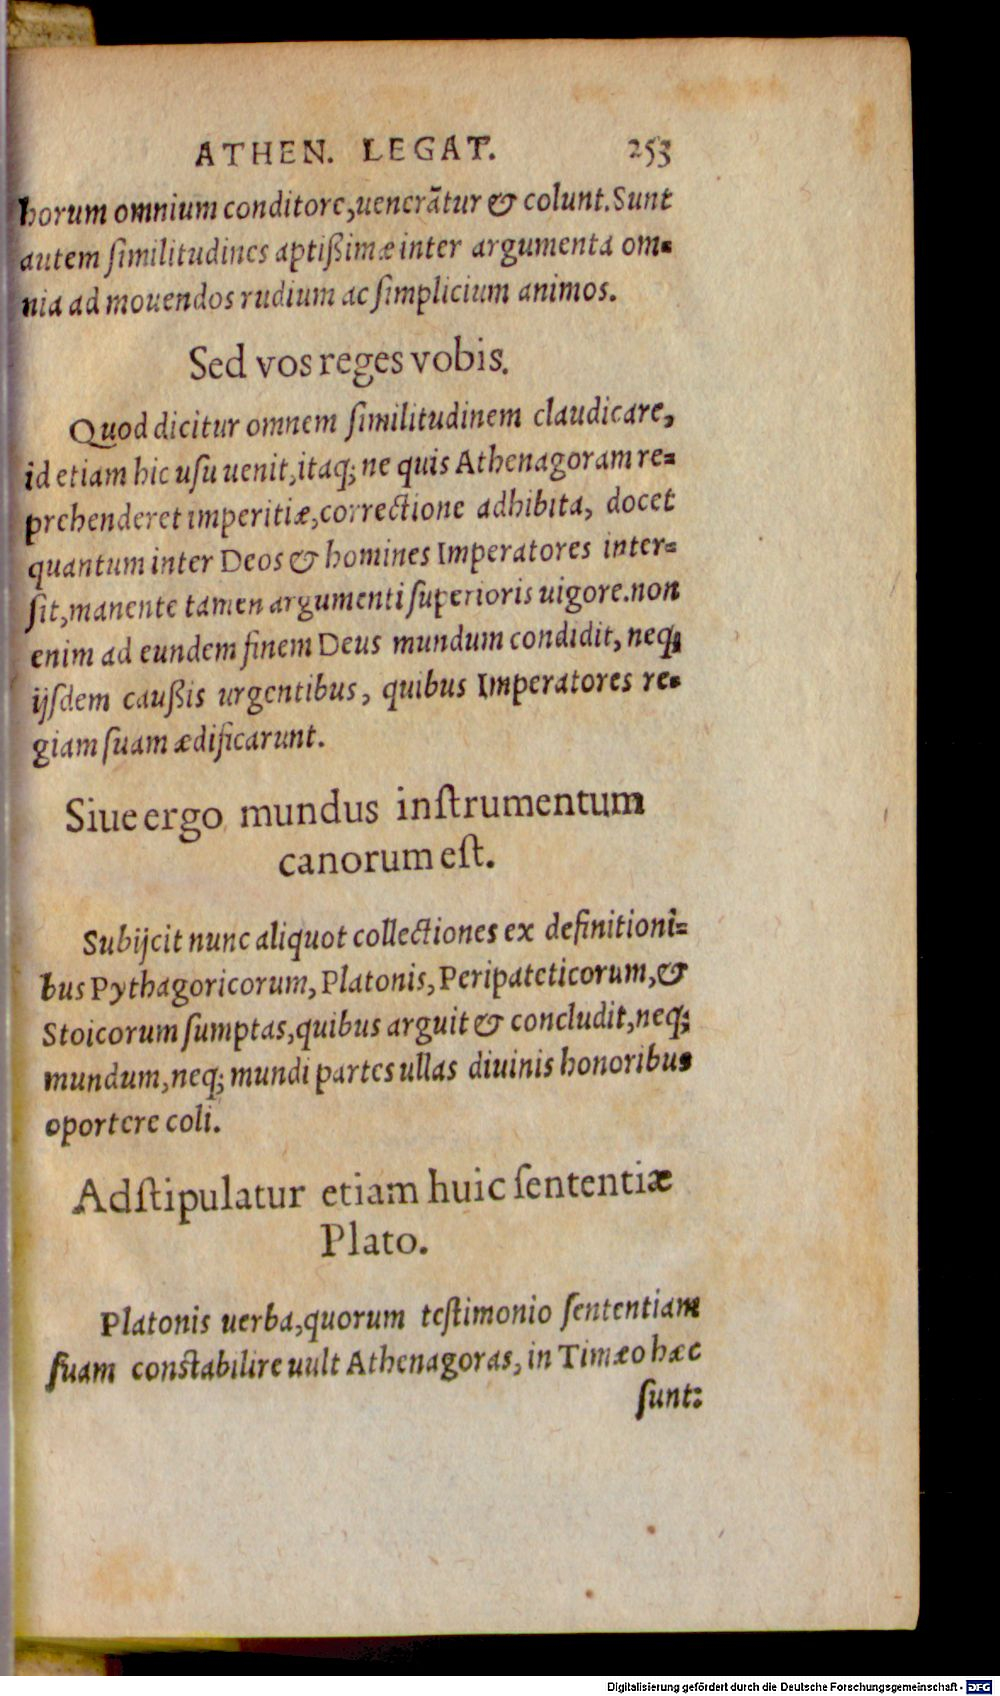 ATHEN. LEGAT. 253
horum omnium conditore,uenerãtur & colunt.Sunt
autem ſimilitudines aptißimæ inter argumenta om=
nia ad mouendos rudium ac ſimplicium animos.
Sed vos reges vobis.
Quod dicitur omnem ſimilitudinem claudicare,
id etiam hic uſu uenit,itaq; ne quis Athenagoram re=
prehenderet imperitiæ,correctione adhibita, docet
quantum inter Deos & homines Imperatores inter=
ſit,manente tamen argumenti ſuperioris uigore.non
enim ad eundem finem Deus mundum condidit, neq;
ijſdem caußis urgentibus, quibus Imperatores re=
giam ſuam ædificarunt.
Siue ergo mundus inſtrumentum
canorum eſt.
Subijcit nunc aliquot collectiones ex definitioni=
bus Pythagoricorum, Platonis, Peripateticorum,&
Stoicorum ſumptas,quibus arguit & concludit,neq;
mundum,neq; mundi partes ullas diuinis honoribus
oportere coli.
Adſtipulatur etiam huic ſententiæ
Plato.
Platonis uerba,quorum teſtimonio ſententiam
ſuam conſtabilire uult Athenagoras, in Timæo hæc
ſunt:
Digitalisierung gefördert durch die Deutsche Forschungsgemeinschaft - DFG